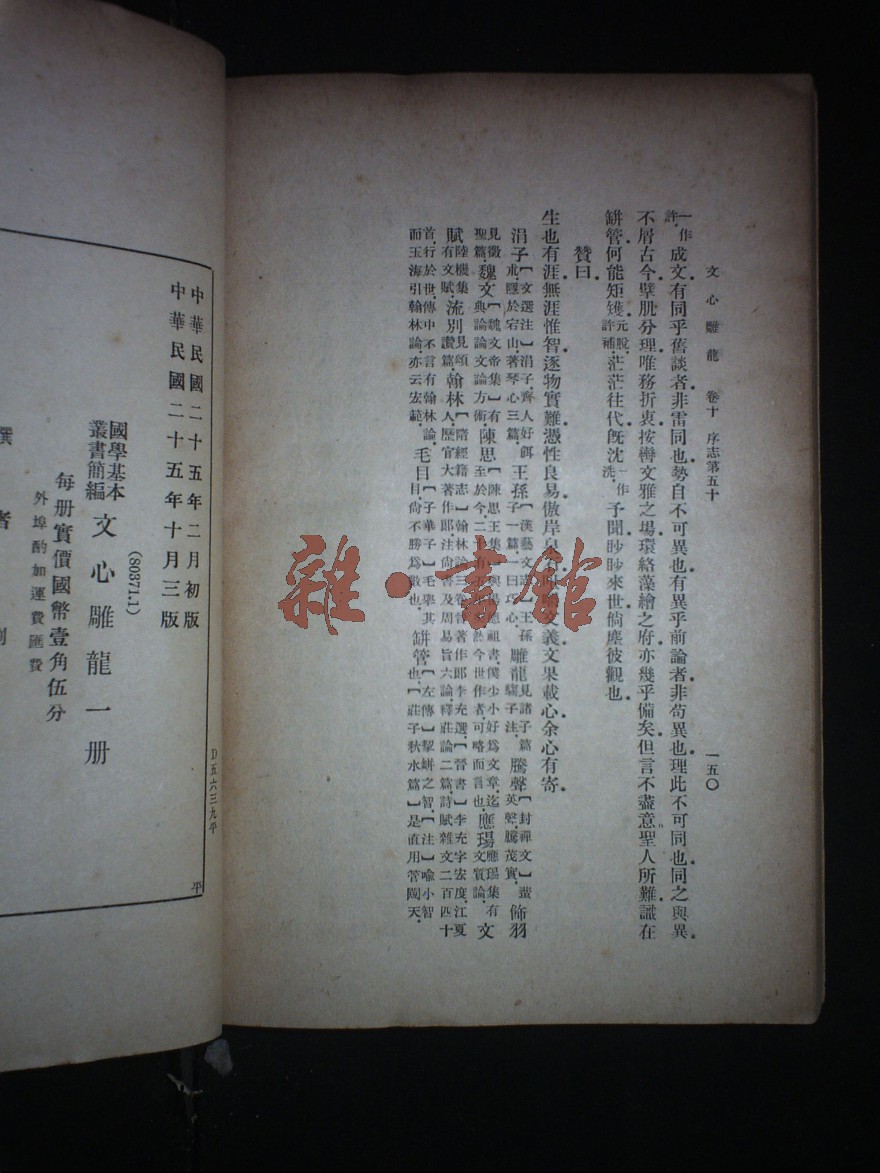 文心雕龍 卷十 序志第五十 一五〇
一作許
成文有同乎舊談者非雷同也勢自不可異也有異乎前論者非苟異也理此不可同也同之與異
不屑古今擘肌分理唯務折衷按轡文雅之場環絡藻繪之府亦幾乎備矣但言不盡意聖人所難識在
缾管何能矩矱元脫許補茫茫往代旣沈一作洗予聞眇眇來世倘塵彼觀也
贊曰
生也有涯無涯惟智逐物實難憑性良易傲岸泉石咀嚼文義文果載心余心有寄
涓子【文選注】涓子齊人好餌朮隱於宕山著琴心三篇王孫【漢藝文志】王孫子一篇一曰巧心雕龍見諸子篇騶子注騰聲【封禪文】蜚英聲騰茂實飾羽
見徵聖篇魏文【魏文帝集】有典論論文論方術陳思【陳思王集】與楊德祖書僕少小好爲文章迄至於今二十有五年矣然今世作者可略而言也應瑒應瑒集有文質論文
賦陸機集有文賦流別見頌讚篇翰林【隋經籍志】翰林論三卷晉著作郎李充選【晉書】李充字宏度江夏人歷官大著作郎注尙書及周易旨六論釋莊論二篇詩賦雜文二百四十
首行於世傳中不言有翰林論而玉海引翰林論亦云宏範毛目【子華子】毛舉其目尙不勝爲數也缾管【左傳】挈缾之智【注】喩小智也【莊子秋水篇】是直用管闚天
雜·書館
中華民國二十五年二月初版
中華民國二十五年十月三版
國學基本叢書簡編 文心雕龍一册
(80371.1)
每册實價國幣壹角伍分
外埠酌加運費匯費
撰者
D五六三九平
平